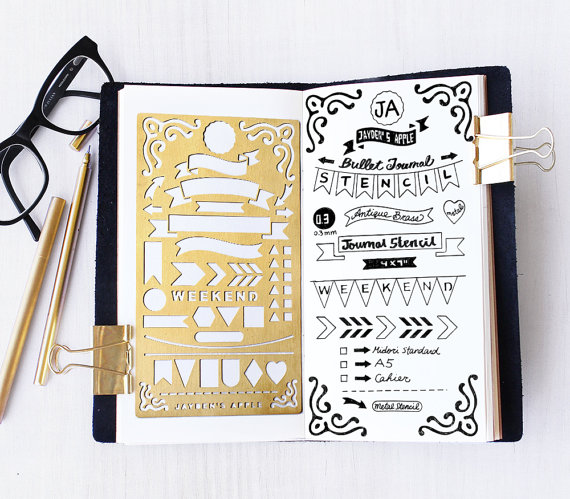 WEEKEND
JAYDEN'S APPLE
JA
JAYDEN'S APPLE
Bullet Journal
STENCIL
0.3
0.3mm
Antique Brass
metal
Journal Stencil
4 x 7"
WEEKEND
Midori Standard
A5
Cahier
Metal Stencil